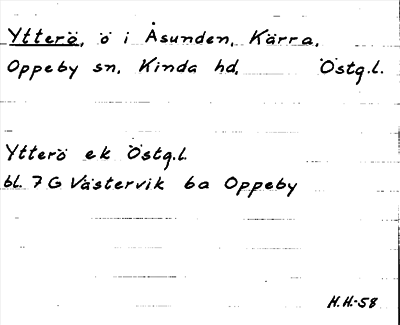 Ytterö, ö i Åsunden, Kärra,
Oppeby sn, Kinda hd, Östg.l.
Ytterö ek Östg.l.
bl. 7 G Västervik 6a Oppeby
H.H.-58